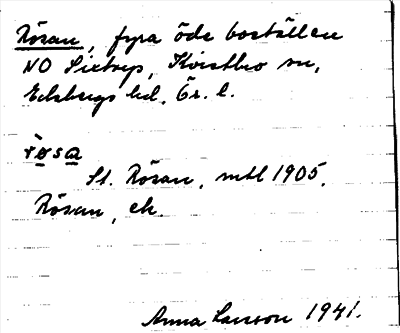 Rösan, fyra öde boställen
NO Sixtorp, Kvistbro sn,
Edsbergs hd, Ör. l.
rösa
St. Rösan, mtl 1905.
Rösan, ek.
Anna Larsson 1941.